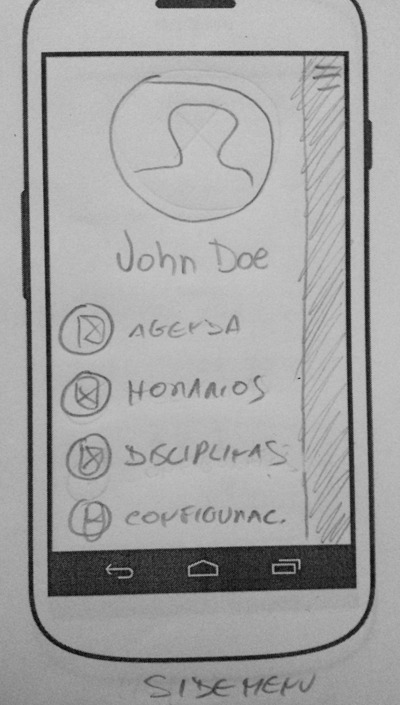 John Doe
AGENDA
HORARIOS
DISCIPLINAS
CONFIGURAC.
SIDEMENU